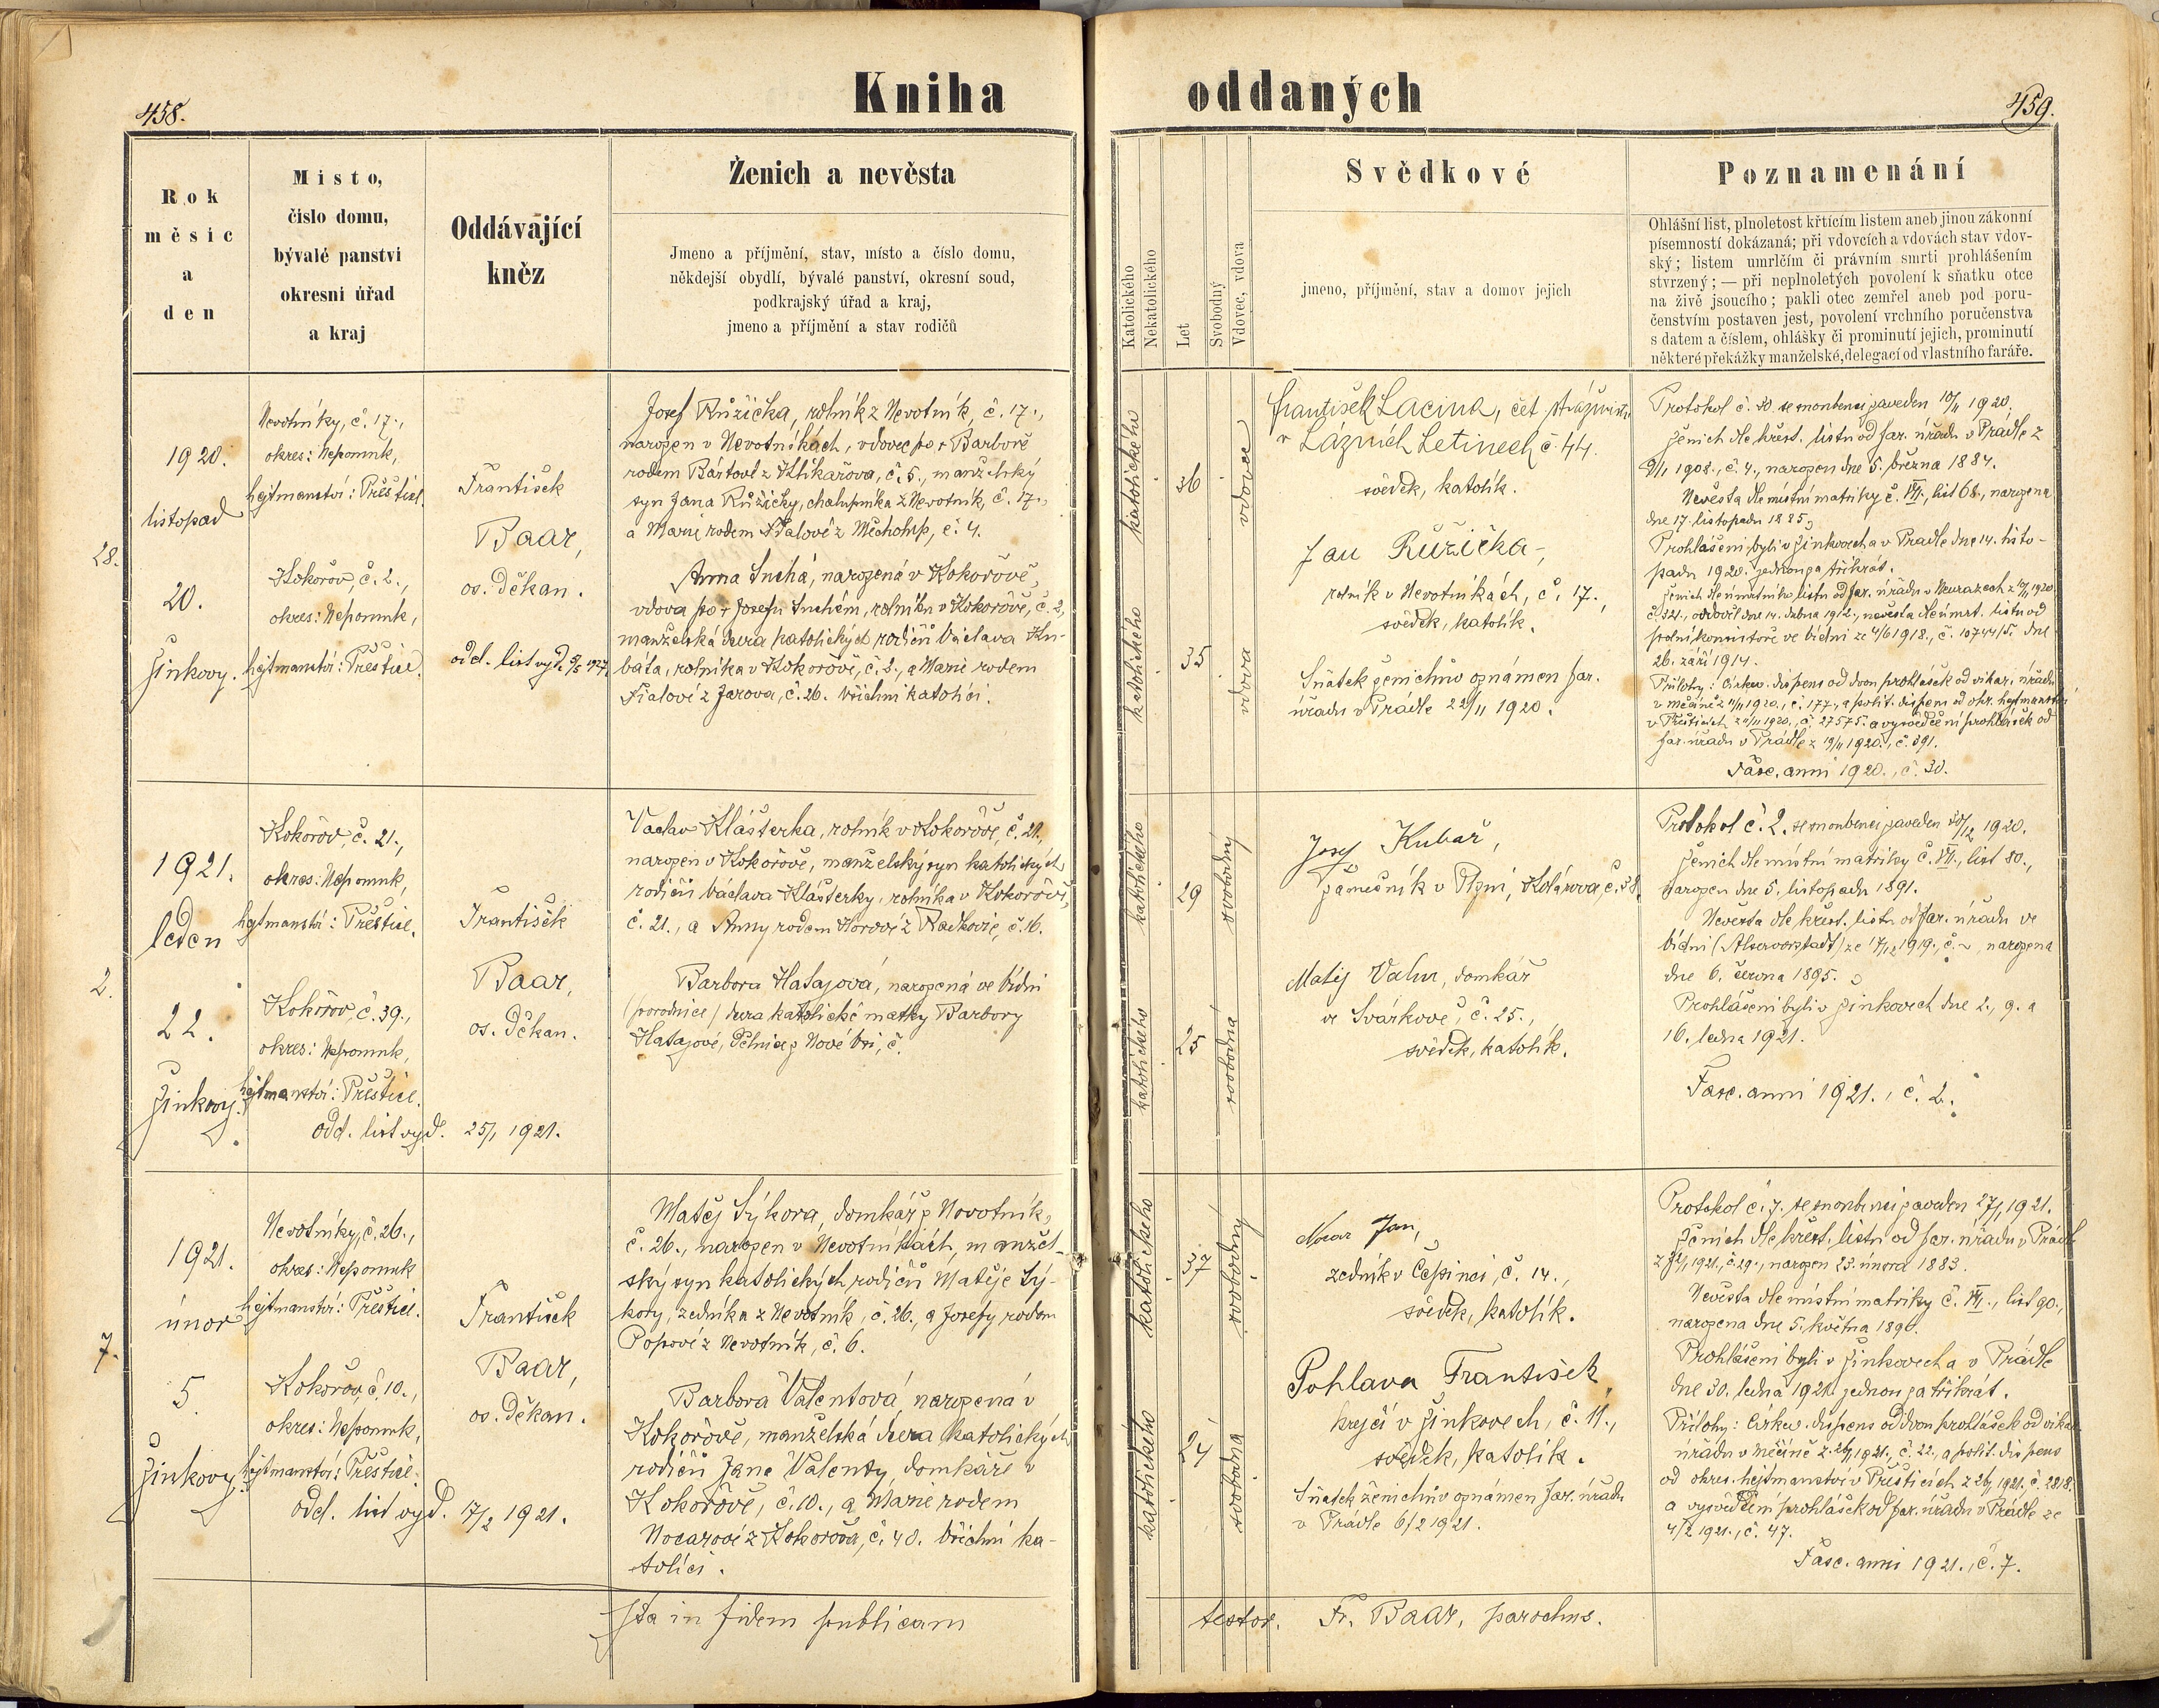 458.
Kniha
oddaných
459.
Rok
měsíc
a
den
Místo,
číslo domu,
bývalé panství
okresní úřad
a kraj
Oddávající
kněz
Ženich a nevěsta
Jmeno a příjmění, stav, místo a číslo domu,
někdejší obydlí, bývalé panství, okresní soud,
podkrajský úřad a kraj,
jmeno a příjmění a stav rodičů
Katolického
Nekatolického
Let
Svobodný
Vdovec, vdova
Svědkové
jmeno, příjmění, stav a domov jejich
Poznamenání
Ohlášní list, plnoletost křtícím listem aneb jinou zákonní
písemností dokázaná; při vdovcích a vdovách stav vdov-
ský; listem umrlčím či právním smrti prohlášením
stvrzený; — při neplnoletých povolení k sňatku otce
na živě jsoucího; pakli otec zemřel aneb pod poru-
čenstvím postaven jest, povolení vrchního poručenstva
s datem a číslem, ohlášky či prominutí jejich, prominutí
některé překážky manželské, delegací od vlastního faráře.
28.
1920.
listopad
20.
Žinkovy.
Nevotníky, č. 17.,
okres: Nepomuk,
hejtmanství: Přeštice.
Kokořov, č. 2.,
okres: Nepomuk,
hejtmanství: Přeštice.
František
Baar,
os. děkan.
odd. list vyd.
Josef Růžička, rolník z Nevotník, č. 17.,
narozen v Nevotníkách, vdovec po † Barboře
rodem Bártové z Klikařova, č. 5., manželský
syn Jana Růžičky, chalupníka z Nevotník, č. 17.,
a Marie rodem Fialové z Měcholup, č. 4.
Anna Suchá, narozená v Kokořově,
vdova po † Josefu Suchém, rolníku v Kokořově, č. 2,
manželská dcera katolických rodičů Václava Ku-
báta, rolníka v Kokořově, č. 2., a Marie rodem
Fialové z Jarova, č. 26. Všichni katolíci.
katolického
36
vdovec
katolického
35
vdova
František Lacina, čet. strážmistr
v Lázních Letinech č 44.
svědek, katolík.
Jan Růžička,
rolník v Nevotníkách, č. 17.,
svědek, katolík.
Sňatek ženichův oznámen far.
úřadu v Prádle 22/11 1920.
Protokol č. 30. se snoubenci zaveden 10/11 1920.
Ženich dle křest. listu od far. úřadu v Prádle z
9/1 1908., č. 4., narozen dne 5. března 1884.
Nevěsta dle místní matriky č. VII., list 68., narozena
dne 17. listopadu 1885.
Prohlášeni byli v Žinkovech a v Prádle dne 14. listo-
padu 1920. jednou za třikrát.
Ženich dle úmrtního listu od far. úřadu v Neurazech z
č. 321., ovdověl dne 14. dubna 1912., nevěsta dle úmrt. listu od
polní konsistoře ve Vídni ze 4/6 1918., č. dne
26. září 1914.
Přílohy: Církev. dispens od dvou prohlášek od vikar. úřadu
v Měčíně z 11/11 1920., č. 177., a polit. dispens od okr. hejtmanství
v Přešticích z 11/11 1920., č. 27575. a vysvědčení prohlášek od
far. úřadu v Prádle z 19/11 1920., č. 391.
Fasc. anni 1920., č. 30.
2.
1921.
leden
22.
Žinkovy.
Kokořov, č. 21.,
okres: Nepomuk,
hejtmanství: Přeštice.
Kokořov, č. 39.,
okres: Nepomuk,
hejtmanství: Přeštice.
odd. list vyd. 25/1 1921.
František
Baar,
os. děkan.
Václav Klášterka, rolník v Kokořově, č. 21.,
narozen v Kokořově, manželský syn katolických
rodičů Václava Klášterky, rolníka v Kokořově,
č. 21., a Anny rodem Horové z Radkovic, č. 16.
Barbora Hatajová, narozená ve Vídni
(porodnice) dcera katolické matky Barbory
Hatajové, dělnice z Nové Vsi, č.
katolického
29
svobodný
katolického
25
svobodná
Josef Kubař,
zámečník v Plzni, Kolárova, č. 38.
Matěj Valm, domkář
ve Svárkově, č. 25.,
svědek, katolík.
Protokol č. 2. se snoubenci zaveden 30/12 1920.
Ženich dle místní matriky č. VII., list 80.,
narozen dne 5. listopadu 1891.
Nevěsta dle křest. listu od far. úřadu ve
Vídni (Alservorstadt) ze 17/12 1919., č. ~, narozena
dne 6. června 1895.
Prohlášeni byli v Žinkovech dne 2., 9. a
16. ledna 1921.
Fasc. anni 1921., č. 2.
7.
1921.
únor
5.
Žinkovy.
Nevotníky, č. 26.,
okres: Nepomuk
hejtmanství: Přeštice.
Kokořov, č. 10.,
okres: Nepomuk,
hejtmanství: Přeštice.
odd. list vyd. 17/2 1921.
František
Baar,
os. děkan.
Matěj Sýkora, domkář z Novotník,
č. 26., narozen v Nevotníkách, manžel-
ský syn katolických rodičů Matěje Sý-
kory, zedníka z Nevotník, č. 26., a Josefy rodem
Popové z Nevotník, č. 6.
Barbora Valentová, narozená v
Kokořově, manželská dcera katolických
rodičů Jana Valenty, domkáře v
Kokořově, č. 10., a Marie rodem
Nocarové z Kokořova, č. 40. Všichni ka-
tolíci.
katolického
37
svobodný
katolického
24
svobodná
Nocar Jan,
zedník v Čepinci, č. 14.,
svědek, katolík.
Pohlava František,
krejčí v Žinkovech, č. 11.,
svědek, katolík.
Sňatek ženichův oznámen far. úřadu
v Prádle 6/2 1921.
Protokol č. 7. se snoubenci zaveden 27/1 1921.
Ženich dle křest. listu od far. úřadu v Prádle
1921., č. 29., narozen 23. února 1883.
Nevěsta dle místní matriky č. VII., list 90.,
narozena dne 5. května 1896.
Prohlášeni byli v Žinkovech a v Prádle
dne 30. ledna 1921. jednou za třikrát.
Přílohy: Církev. dispens od dvou prohlášek od vikar.
úřadu v Měčíně z 1921., č. 22., a polit. dispens
od okres. hejtmanství v Přešticích z 26/1 1921. č. 2818.
a vysvědčení prohlášek od far. úřadu v Prádle ze
4/2 1921., č. 47.
Fasc. anni 1921., č. 7.
Ita in fidem publicam
testor. Fr. Baar, parochus.